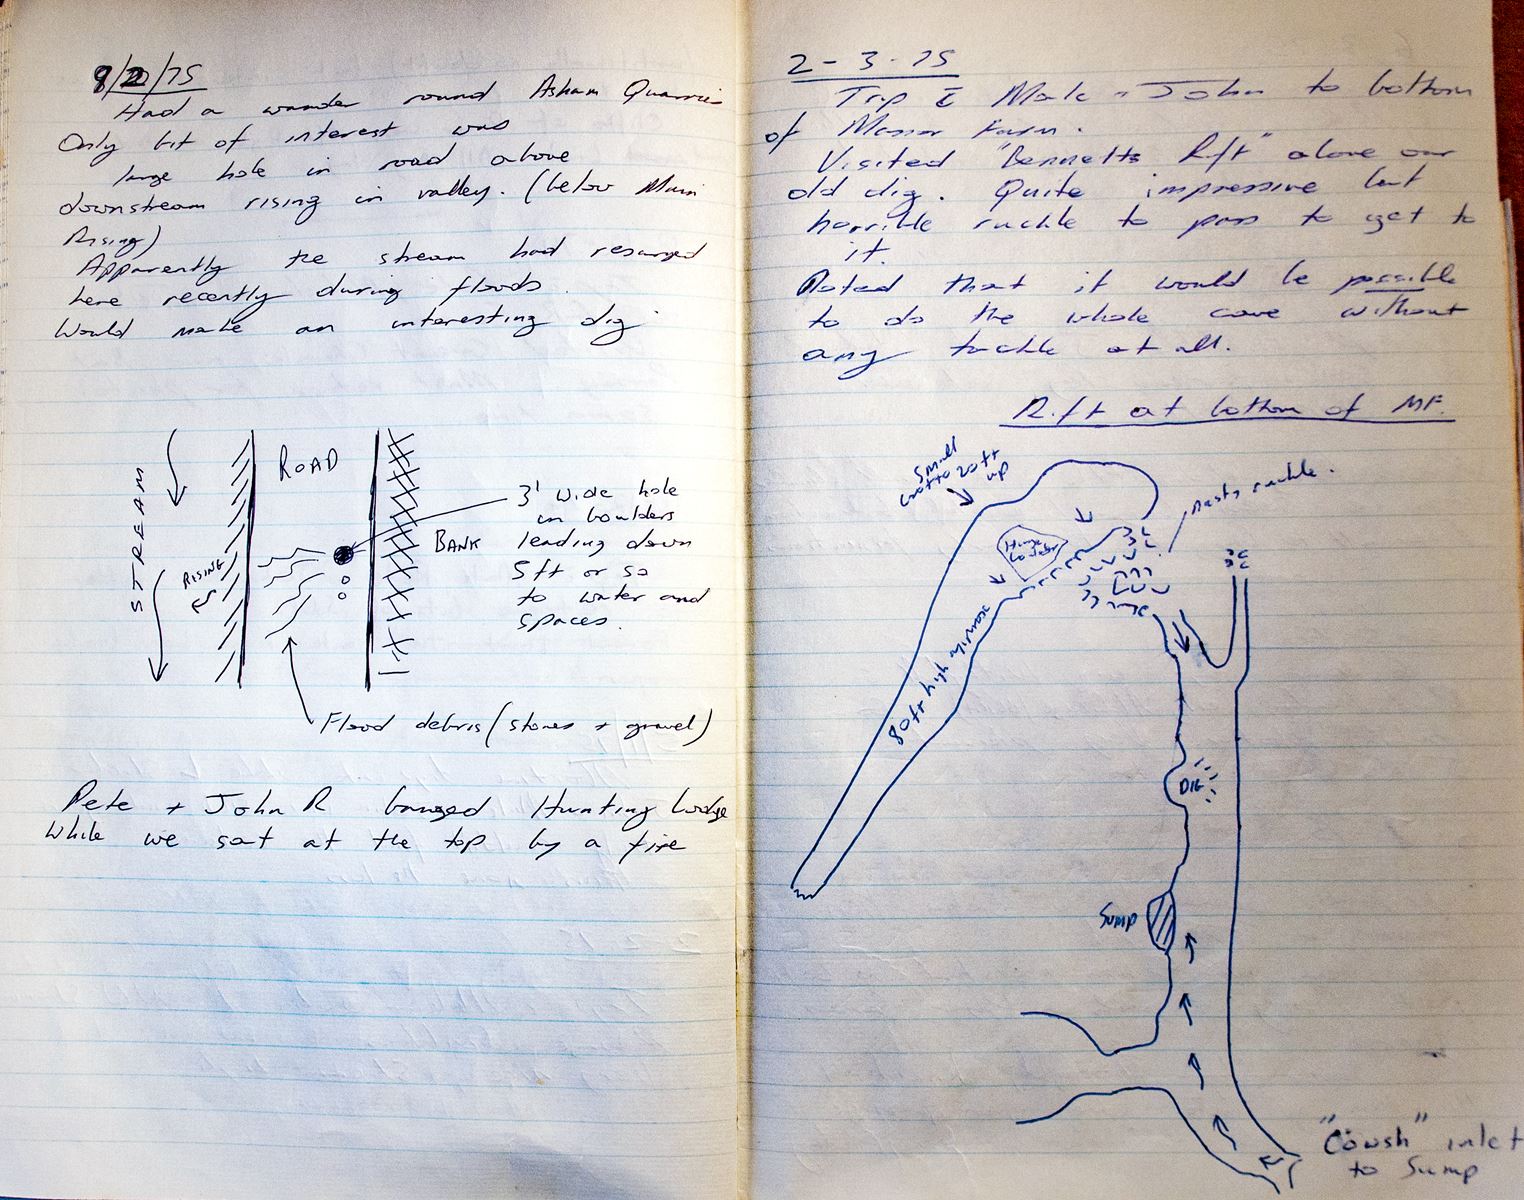 8/2/75
Had a wander round Asham Quarries
Only bit of interest was
large hole in road above
downstream rising in valley. (below Main
Rising)
Apparently the stream had resurged
here recently during floods.
Would make an interesting dig.
STREAM
ROAD
RISING
BANK
3' wide hole
in boulders
leading down
5ft or so
to water and
spaces.
Flood debris (stones + gravel)
Pete + John R banged Hunting Lodge
while we sat at the top by a fire
2-3-75
Trip c̄ Mark + John to bottom
of Manor Farm.
Visited "Bennetts Rift" above our
old dig. Quite impressive but
horrible ruckle to pass to get to
it.
Noted that it would be possible
to do the whole cave without
any tackle at all.
Rift at bottom of MF.
Small
grotto 20ft
up
Huge
boulder
nasty ruckle.
80ft high
DIG
SUMP
"Cowsh" inlet
to Sump